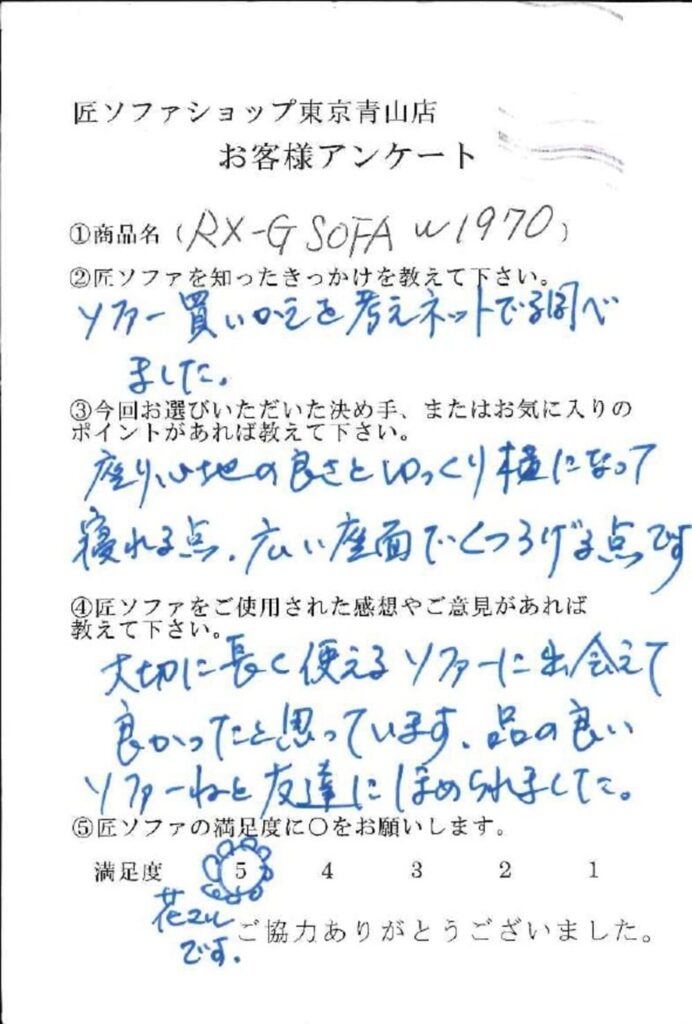 匠ソファショップ東京青山店
お客様アンケート
①商品名（RX-G SOFA w1970）
②匠ソファを知ったきっかけを教えて下さい。
ソファー買いかえを考えネットで調べ
ました。
③今回お選びいただいた決め手、またはお気に入りの
ポイントがあれば教えて下さい。
座り心地の良さとゆっくり横になって
寝れる点、広い座面でくつろげる点です
④匠ソファをご使用された感想やご意見があれば
教えて下さい。
大切に長く使えるソファーに出会えて
良かったと思っています、品の良い
ソファーねと友達にほめられました。
⑤匠ソファの満足度に○をお願いします。
満足度 5 4 3 2 1
花マル
です。
ご協力ありがとうございました。